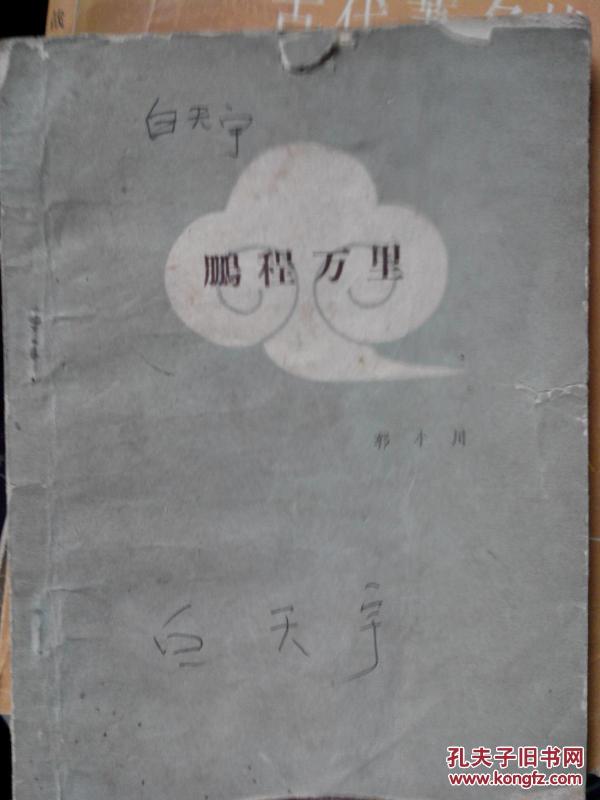 战
古代著名
白天宇
鹏程万里
郭小川
白天宇
孔夫子旧书网
www.kongfz.com